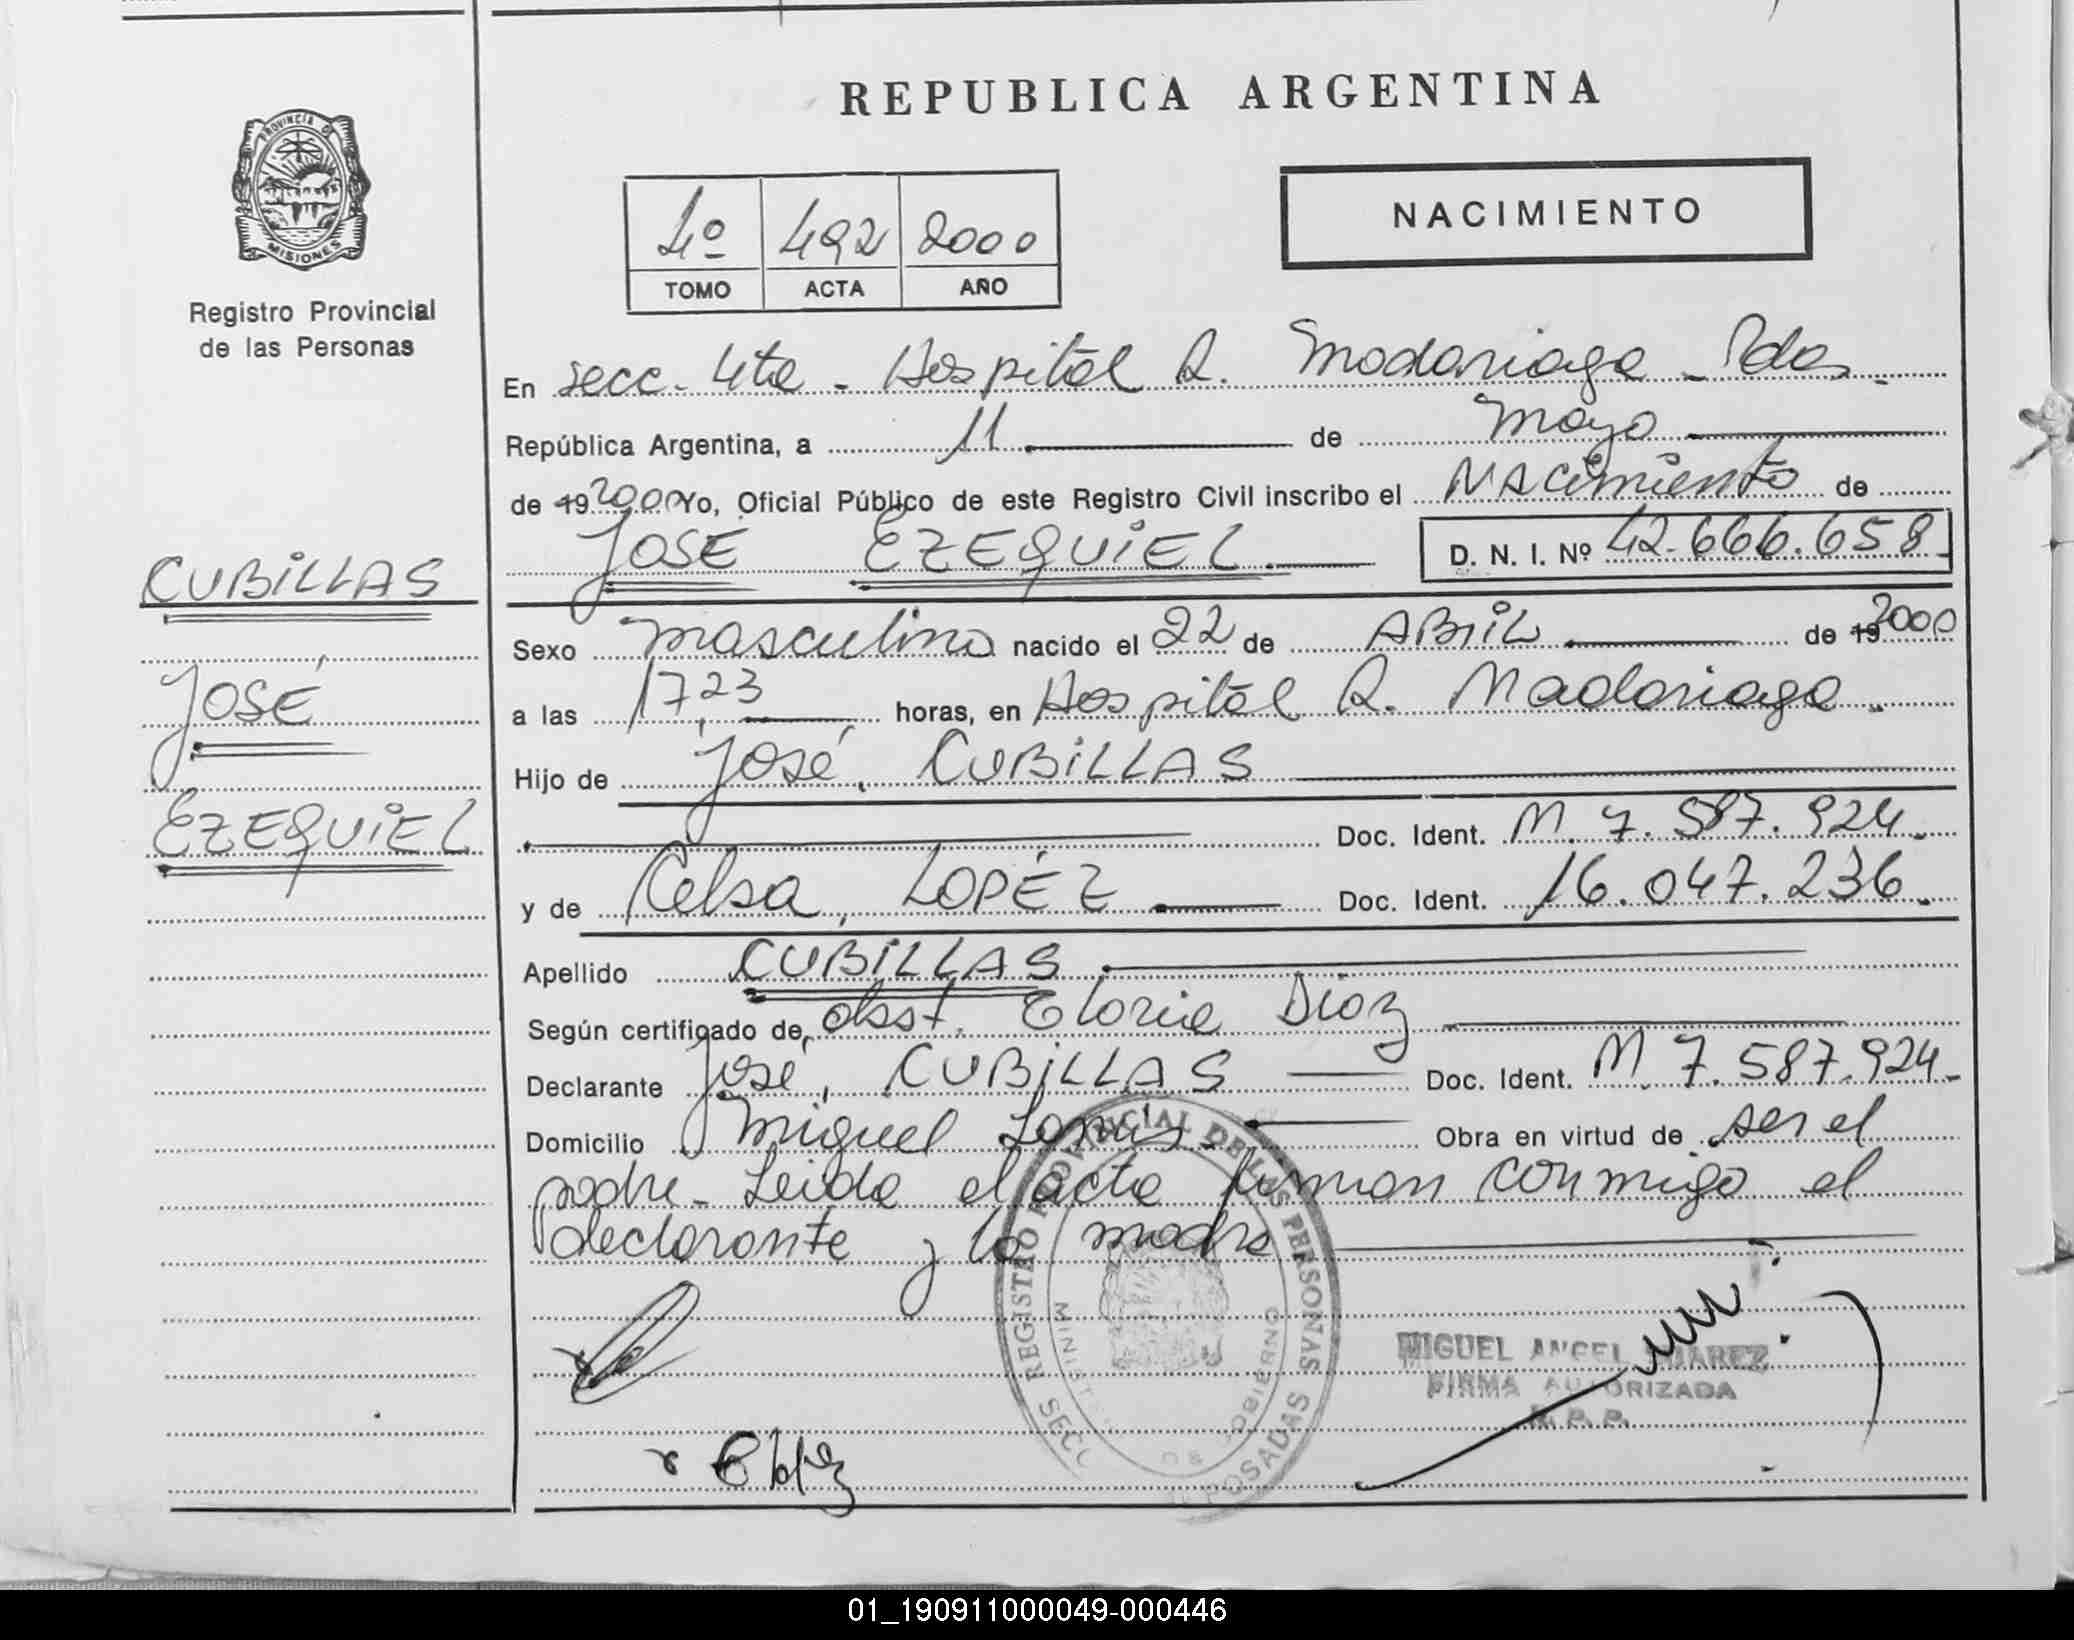 REPUBLICA ARGENTINA
PROVINCIA DE
MISIONES
Registro Provincial
de las Personas
4º 492 2000
TOMO ACTA AÑO
NACIMIENTO
En secc. 4ta - Hospital R. Madariaga - Pdas.
República Argentina, a 11 de Mayo
de 19 2000 Yo, Oficial Público de este Registro Civil inscribo el NACimiento de
JOSÉ EZEQUIEL. D. N. I. Nº 42.666.658
CUBILLAS
JOSÉ
EZEQUIEL
Sexo masculino nacido el 22 de ABRIL de 19 2000
a las 17,23 horas, en Hospital R. Madariaga.
Hijo de José, CUBILLAS
Doc. Ident. M. 7.587.924.
y de Celsa, LOPÉZ Doc. Ident. 16.047.236.
Apellido CUBILLAS.
Según certificado de, obst. Gloria Diaz
Declarante José, CUBILLAS Doc. Ident. M. 7.587.924.
Domicilio Miguel Lanus. Obra en virtud de ser el
padre - Leida el acta firman conmigo el
declarante y la madre
REGISTRO PROVINCIAL DE LAS PERSONAS
GOBIERNO
POSADAS
MIGUEL ANGEL SUAREZ
FIRMA AUTORIZADA
R. P. P.
01_190911000049-000446